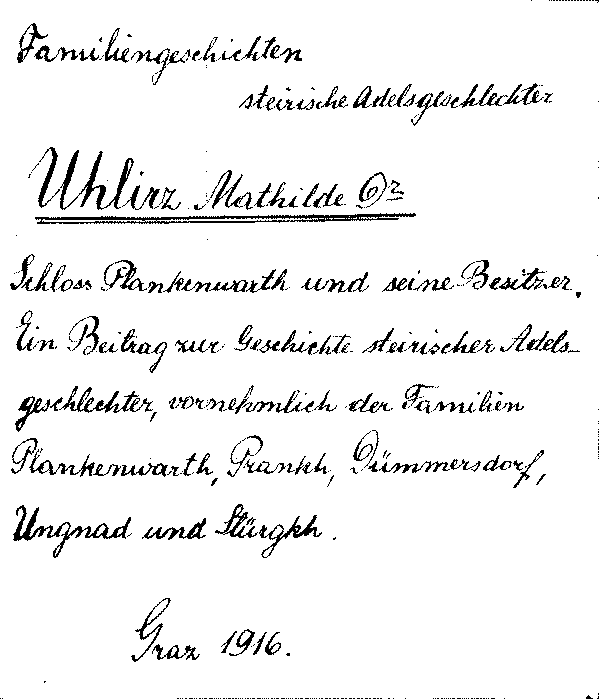 Familiengeschichten
steirische Adelsgeschlechter
Uhlirz Mathilde Dr
Schloss Plankenwarth und seine Besitzer.
Ein Beitrag zur Geschichte steirischer Adels-
geschlechter, vornehmlich der Familien
Plankenwarth, Prankh, Dümmersdorf,
Ungnad und Stürgkh.
Graz 1916.